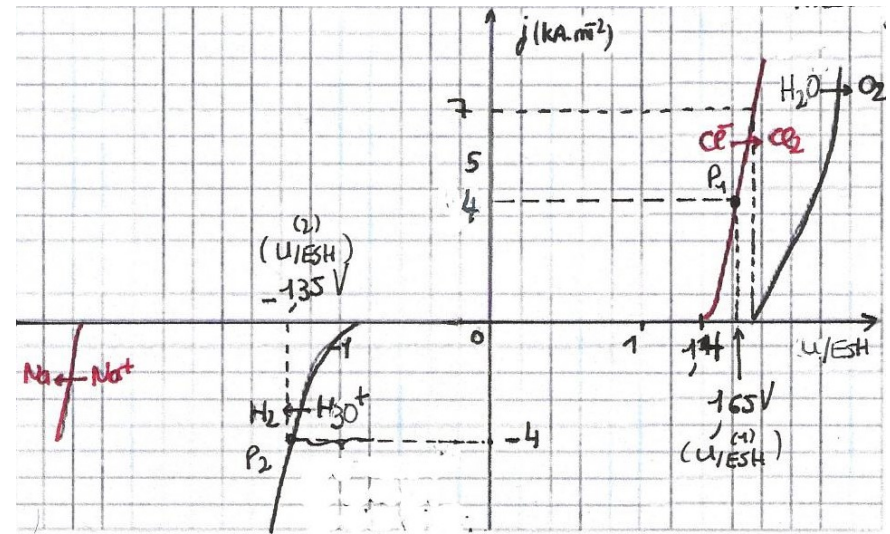 j(kA.m⁻²)
H₂O → O₂
7
Cl⁻ → Cl₂
5
P₁
4
(2)
(U/ESH)
-1,35 V
0
1
1,4
U/ESH
-1
Na ← Na⁺
H₂ ← H₃O⁺
1,65 V
-4
P₂
(1)
(U/ESH)